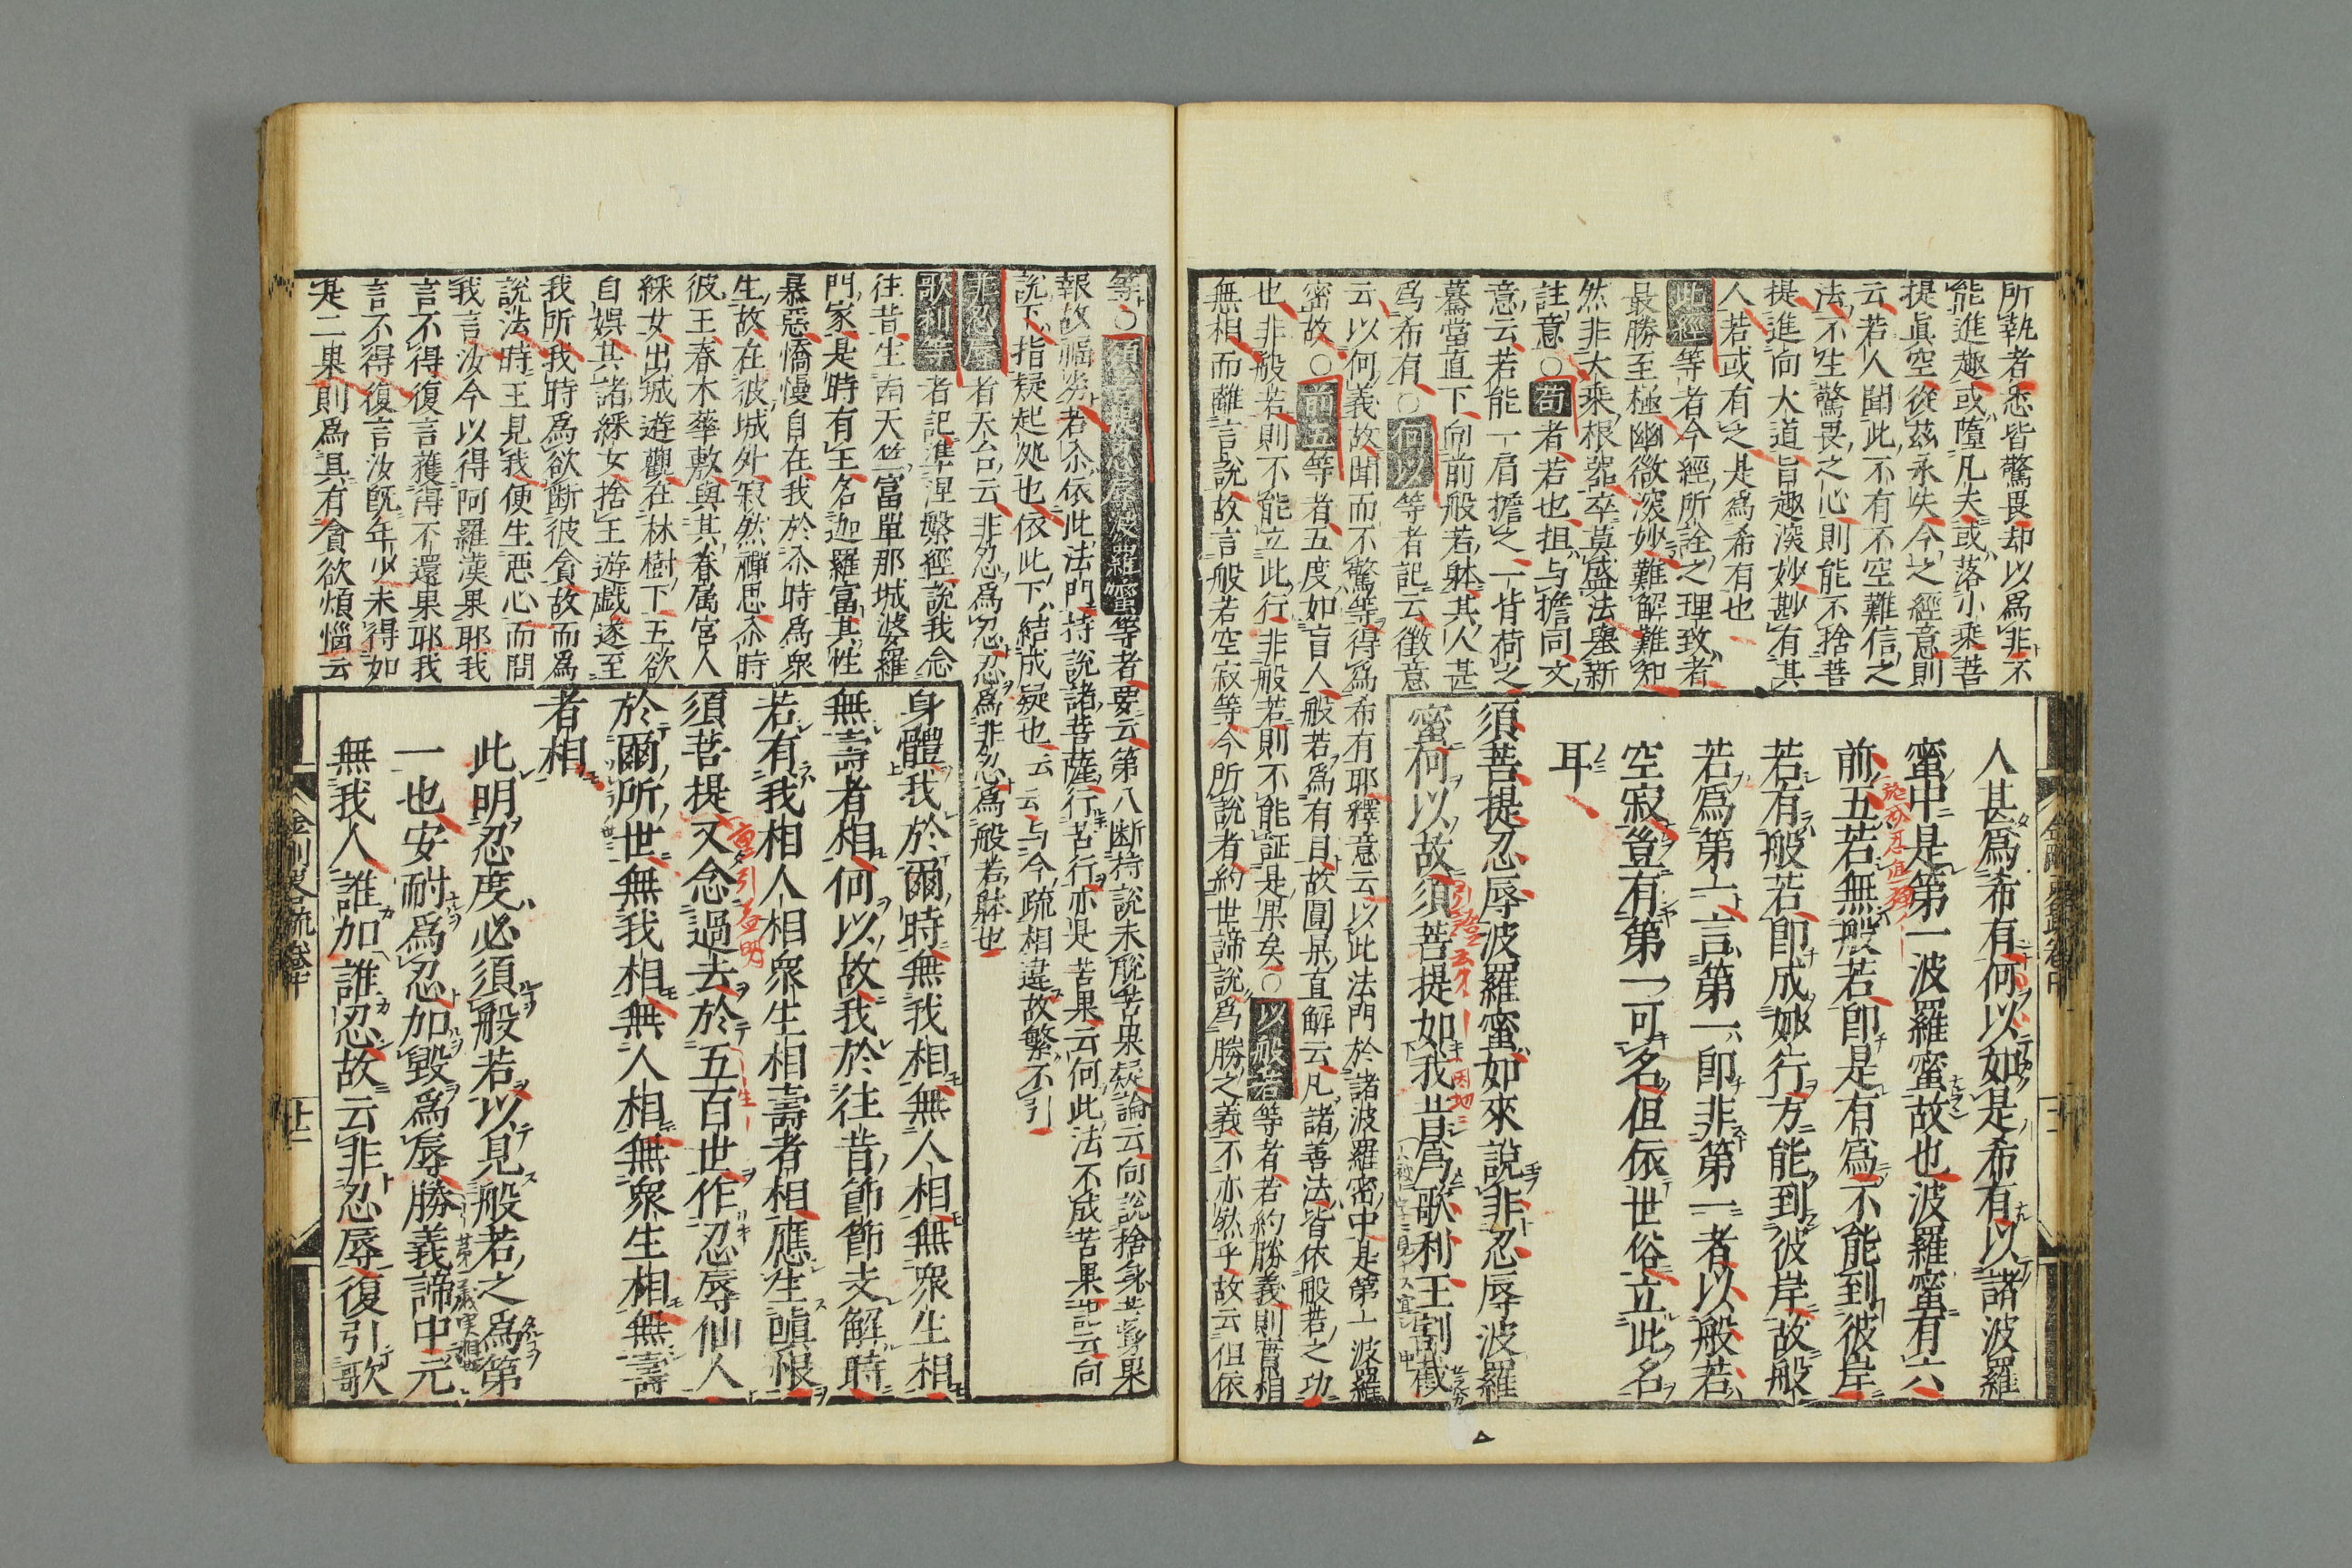 所執者悉皆驚畏却以爲非不
能進趣或墮凡夫或落小乘菩
提眞空從茲永失今之經意則
云若人聞此不有不空難信之
法不生驚畏之心則能不捨菩
提進向大道旨趣深妙尠有其
人若或有之是爲希有也
此經等者今經所詮之理致者
最勝至極幽微深妙難解難知
然非大乘根器卒莫盛法舉新
註意○荷者若也担与擔同文
意云若能一肩擔之一背荷之
驀當直下向前般若躰其人甚
爲希有○何以等者記云徵意
云以何義故聞而不驚等得爲希有耶釋意云以此法門於諸波羅密中是第一波羅
密故○前五等者五度如盲人般若爲有目故圓杲直解云凡諸善法皆依般若之功
也非般若則不能立此行非般若則不能証是果矣○以般若等者若約勝義則實相
無相而離言說故言般若空寂等今所說者約世諦說爲勝之義不亦然乎故云但依
人甚爲希有何以如是希有以諸波羅
蜜中是第一波羅蜜故也波羅蜜有六
前五若無般若卽是有爲不能到彼岸
若有般若卽成妙行方能到彼岸故般
若爲第一言第一卽非第一者以般若
空寂豈有第一可名但依世俗立此名
耳
須菩提忍辱波羅蜜如來說非忍辱波羅
蜜何以故須菩提如我昔爲歌利王割截
等○須菩提忍辱波羅蜜等者要云第八斷持說未脫苦果疑論云向說捨身其身果
報故福劣若尒依此法門持說諸菩薩行苦行亦是苦果云何此法不成苦果記云向
說下指疑起処也依此下結成疑也云云与今疏相違故繁不引
非忍辱者天台云非忍爲忍忍爲非忍爲般若躰也
歌利等者記準涅槃經說我念
往昔生南天竺富單那城婆羅
門家是時有王名迦羅富其性
暴惡憍慢自在我於尒時爲衆
生故在彼城外寂然禪思尒時
彼王春木華敷與其眷属宮人
綵女出城遊觀在林樹下五欲
自娯其諸綵女捨王遊戲遂至
我所我時爲欲断彼貪故而爲
說法時王見我便生惡心而問
我言汝今以得阿羅漢果耶我
言不得復言獲得不還果耶我
言不得復言汝旣年少未得如
是二果則爲具有貪欲煩惱云
身體我於爾時無我相無人相無衆生相
無壽者相何以故我於往昔節節支解時
若有我相人相衆生相壽者相應生嗔恨
須菩提又念過去於五百世作忍辱仙人
於爾所世無我相無人相無衆生相無壽
者相
此明忍度必須般若以見般若之爲第
一也安耐爲忍加毀爲辱勝義諦中元
無我人誰加誰忍故云非忍辱復引歌